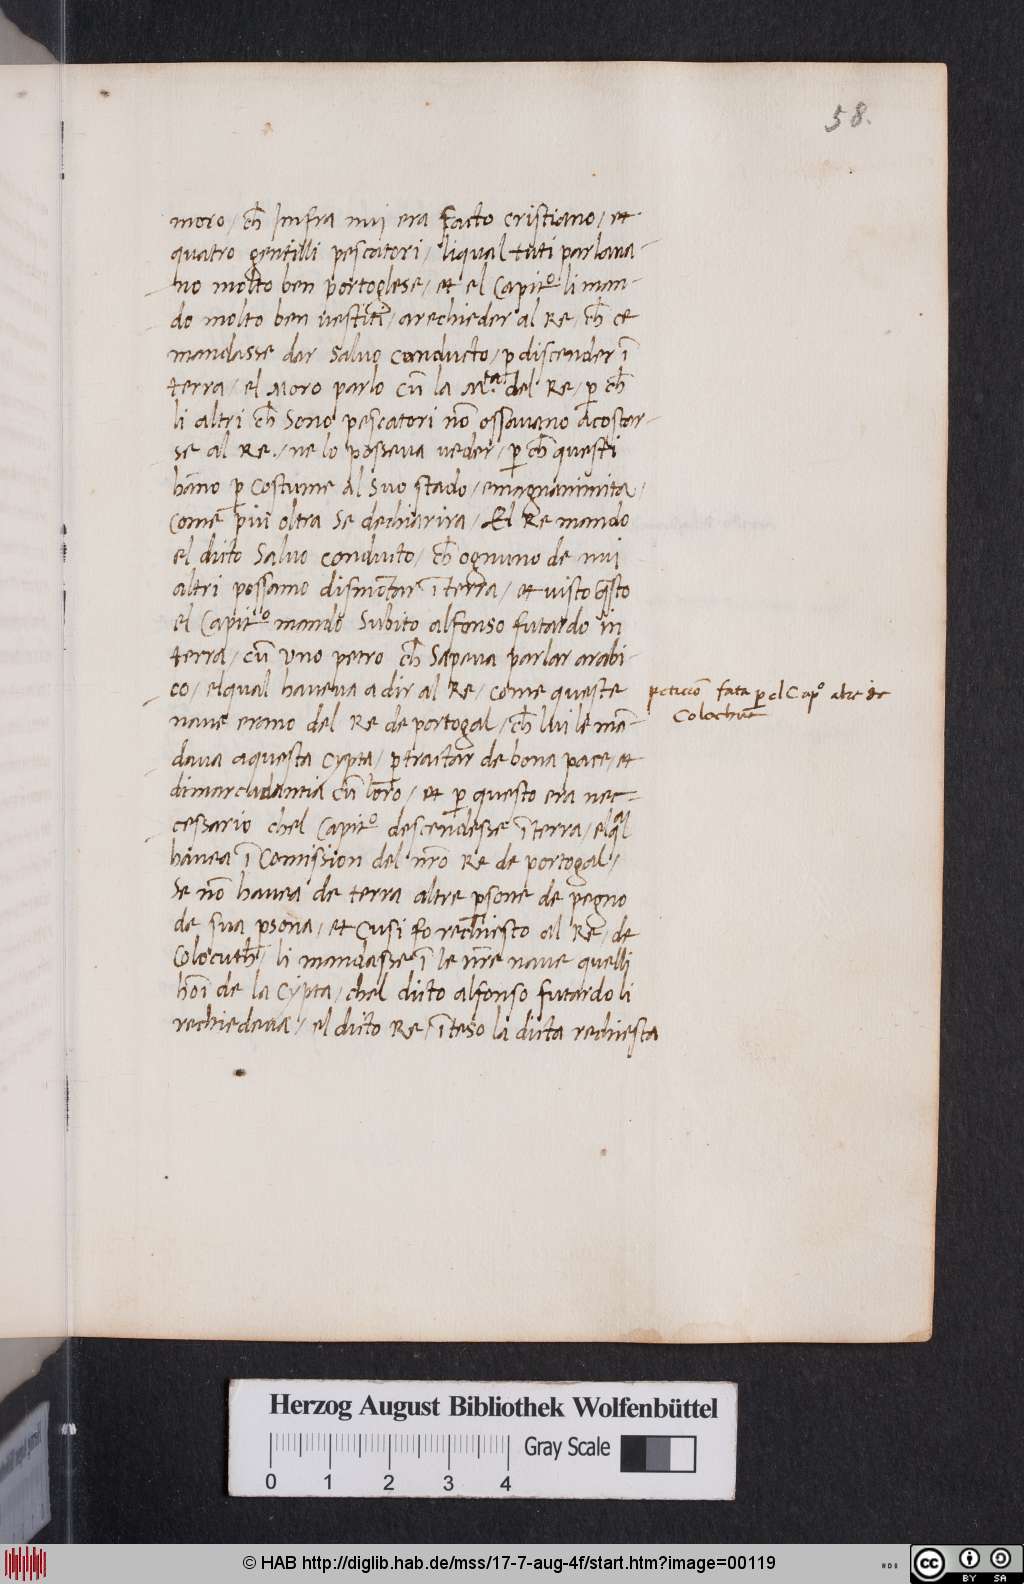 58.
moro / ch̄ Jnfra nui era facto cristiano / et
quatro gentilli pescatori / liqual tuti parlaua-
no molto ben portoglese / et el Capitº. li man-
do molto ben uestiti / a rechieder al Re / ch̄ ce
mandasse dar Saluo conducto / p̱ discender ī
terra / el Moro parlo cū la M.ta del Re / p̱ ch̄
li altri ch̄ Sono pescatori nō ossauano acostar-
se al Re. / ne lo posseua ueder / p̱ ch̄ questi
hāno p̱ Costume al Suo stado / e magnanimita /
Come piu oltra Se dechiarira / El Re mando
el dicto Saluo conducto / ch̄ ognuno de nui
altri possamo dismōtar ī terra / et uisto q̄sto
el Capitº. mando Subito alfonso futardo in
terra / cū uno petro ch̄ Sapeua parlar arabi-
co / elqual haueua a dir al Re / come queste
naue erano del Re de portogal / ch̄ lui le mā-
daua a questa Cypta / p̱ traitar de bona pace / et
di marcadantia cū loro / et p̱ questo era nec-
cessario chel Capitº descendesse ī terra / elq̄l
hauea ī Comission del nr̄o Re de portogal /
Se nō hauea de terra altre p̱sone de pegno
de sua p̱sona / et Cusi fo rechiesto al Re / de
Colocuth / li mandasse ī le nr̄e naue quelli
hōi de la Cypta / chel dicto alfonso futardo li
rechiedeua / el dicto Re / īteso la dicta rechiesta
peticiō fata p̱ el Capº al re de
Colochut
Herzog August Bibliothek Wolfenbüttel
Gray Scale
0 1 2 3 4
© HAB http://diglib.hab.de/mss/17-7-aug-4f/start.htm?image=00119
cc BY SA